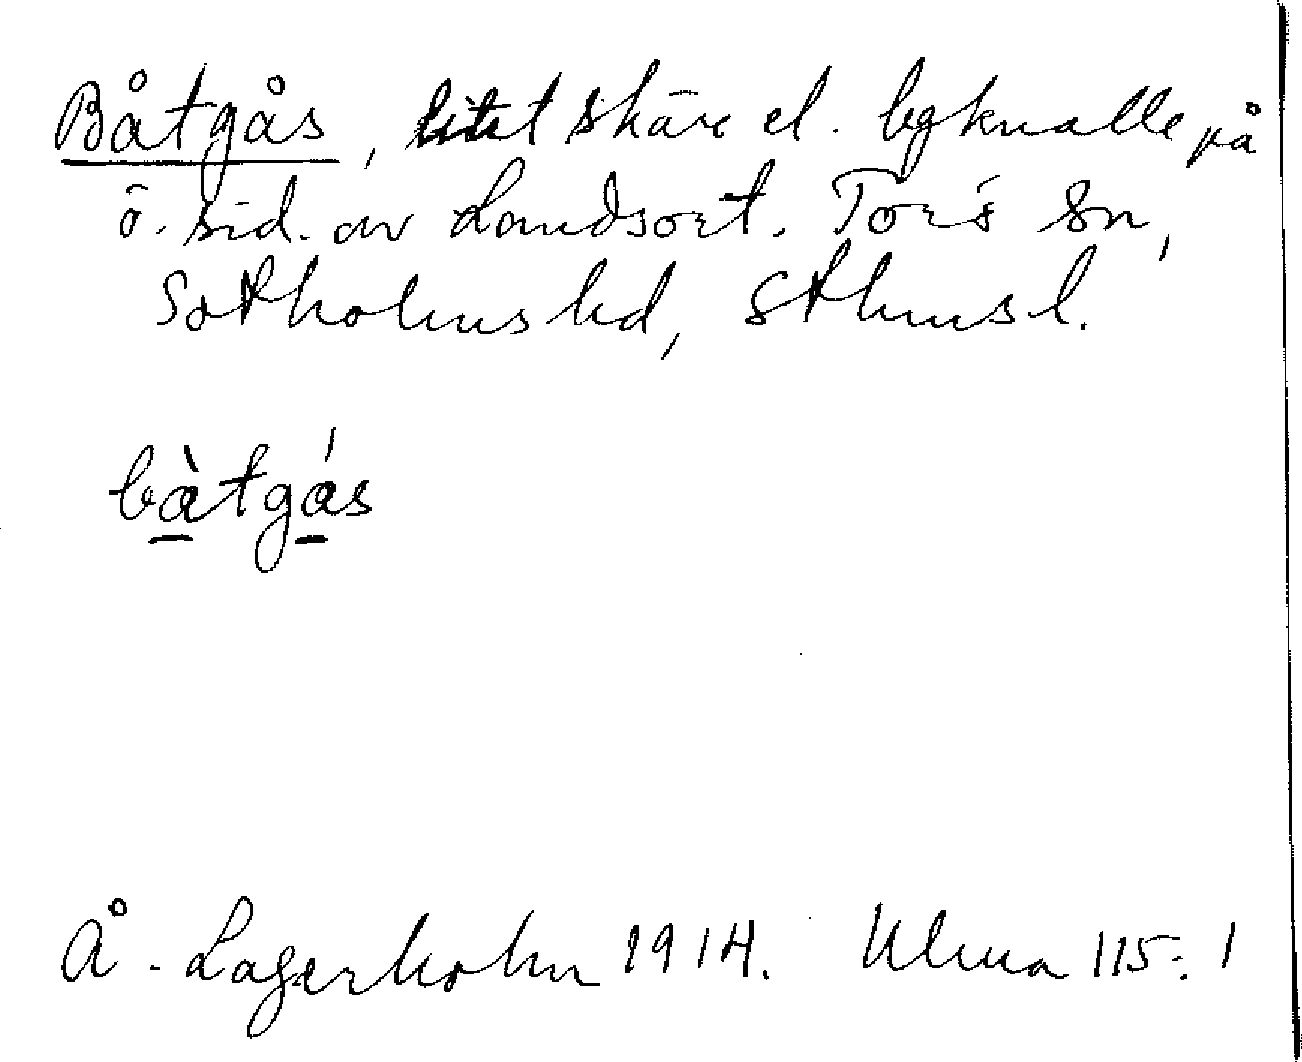 Båtgås, litet skär el. bgknalle på
ö. sid. av Landsort. Torö sn,
Sotholms hd, Sthms l.
bàtgás
Å. Lagerholm 1914. Ulma 115:1